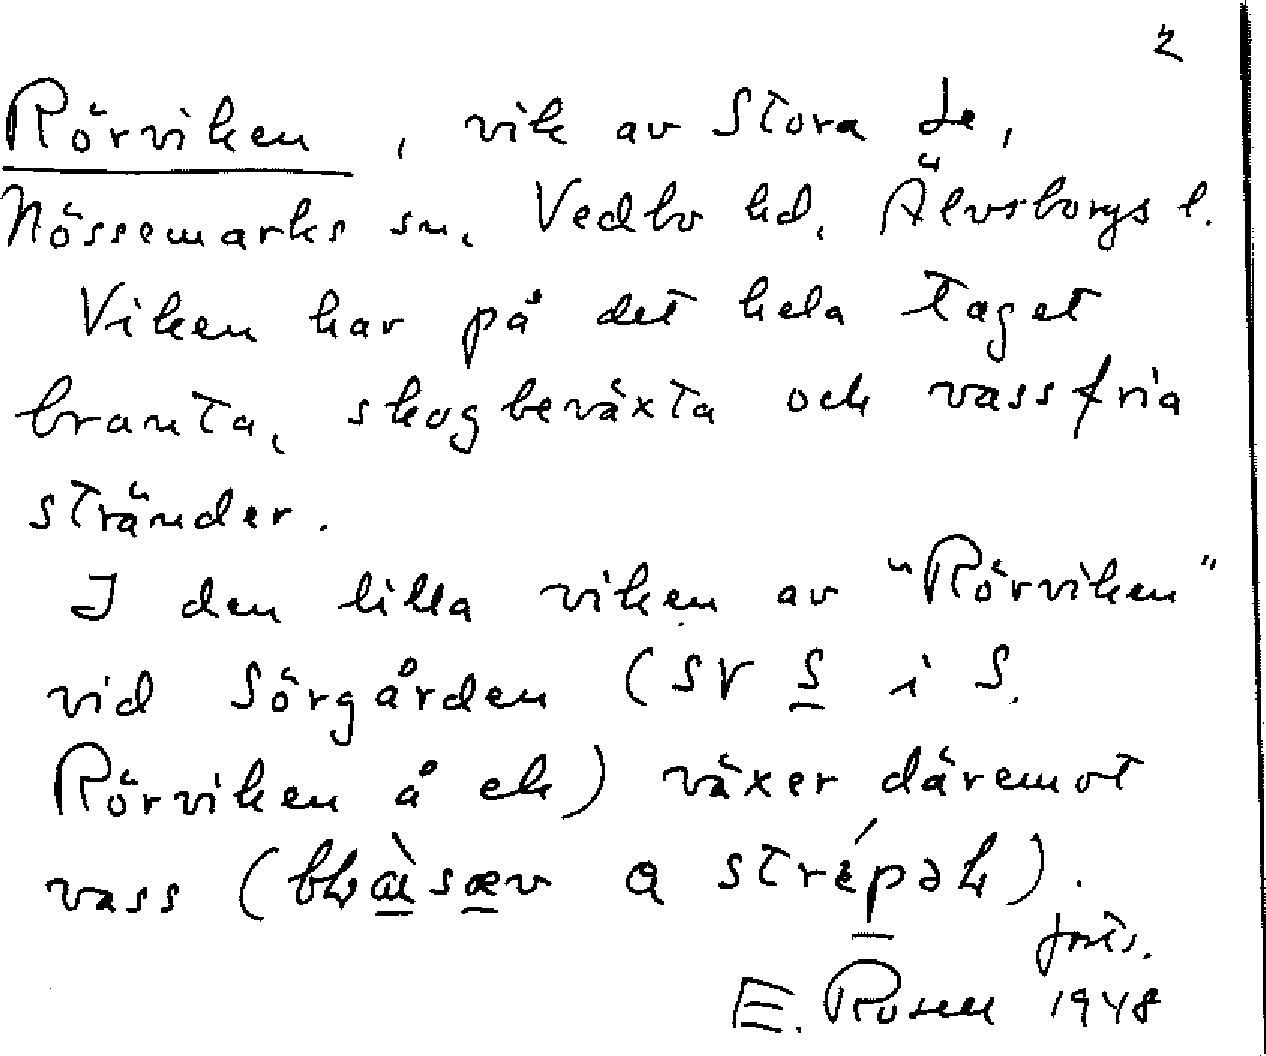 2
Rörviken, vik av Stora Le,
Nössemarks sn. Vedbo hd. Älvsborgs l.
Viken har på det hela taget
branta, skogbeväxta och vassfria
stränder.
I den lilla viken av "Rörviken"
vid Sörgården (SV S i S.
Rörviken å ek) växer däremot
vass ( sæv a strépək).
forts.
E. Rosell 1948